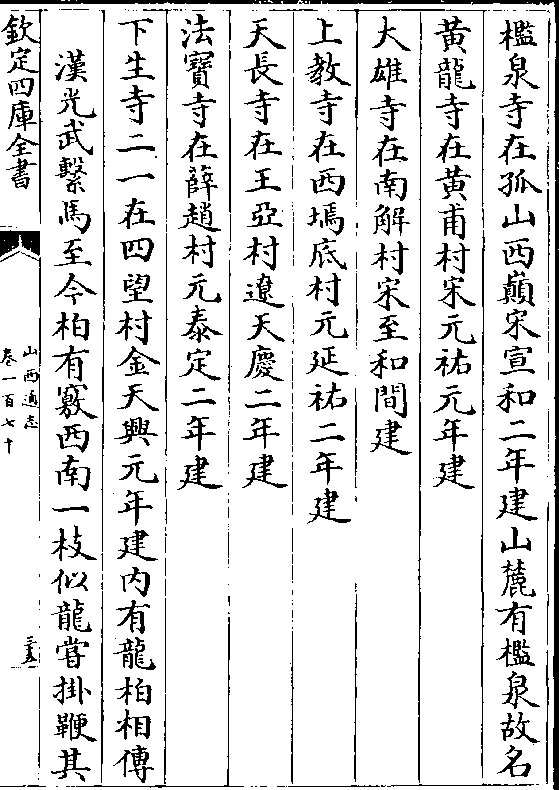 檻泉寺在孤山西巔宋宣和二年建山麓有檻泉故名
黄龍寺在黄甫村宋元祐元年建
大雄寺在南解村宋至和間建
上教寺在西塢底村元延祐二年建
天長寺在王亞村遼天慶二年建
法寶寺在薛趙村元泰定二年建
下生寺二一在四望村金天興元年建内有龍柏相傳
漢光武繫馬至今柏有竅西南一枝似龍嘗掛鞭其
欽定四庫全書
山西通志
卷一百七十
三五